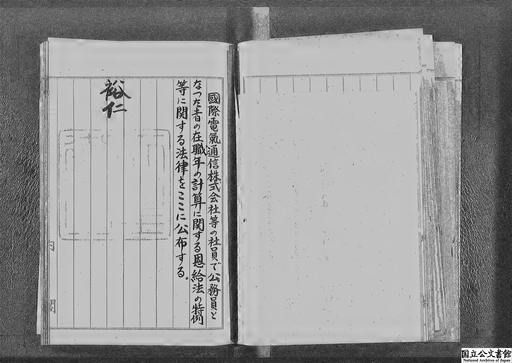 國際電氣通信株式会社等の社員で公務員と
なつた者の在職年の計算に関する恩給法の特例
等に関する法律をここに公布する。
裕仁
内閣
国立公文書館
National Archives of Japan